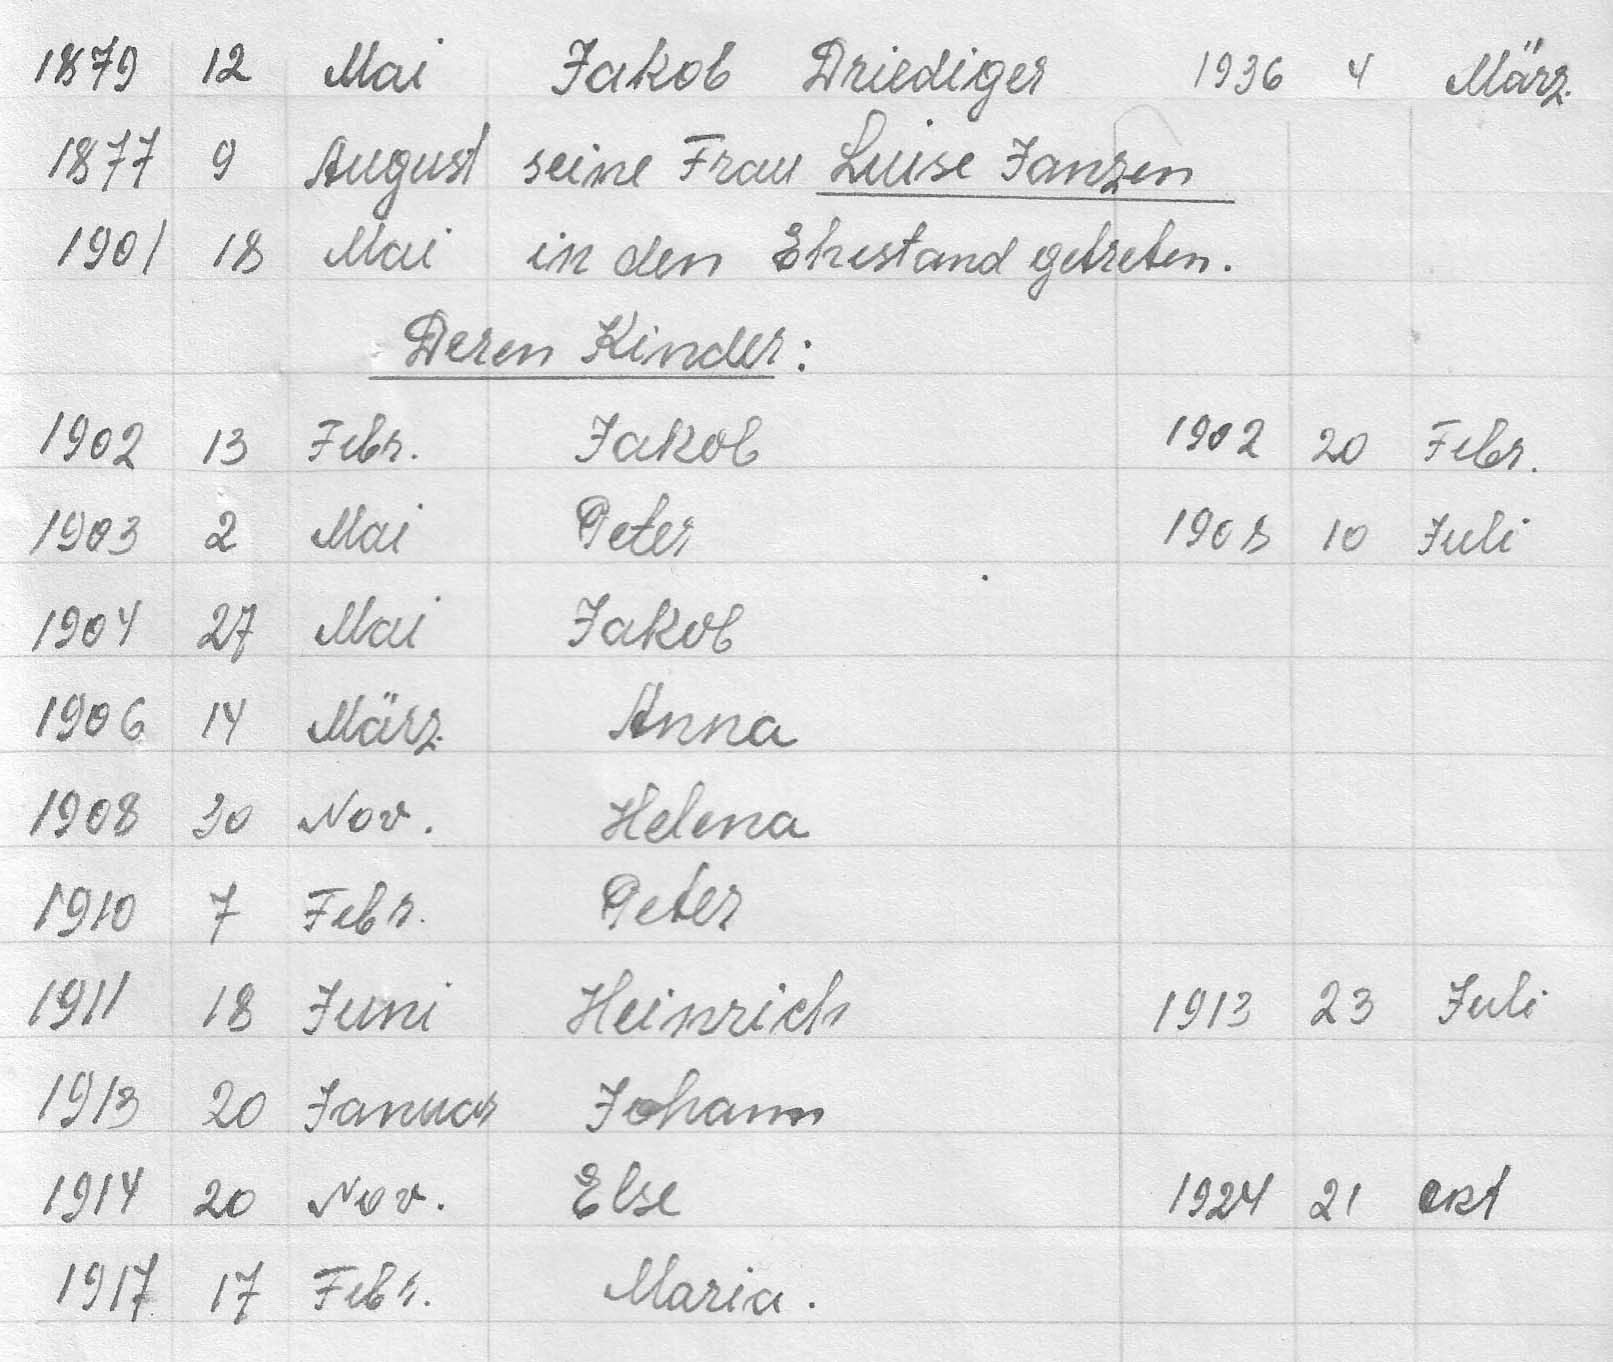 1879 12 Mai Jakob Driediger 1936 4 März.
1877 9 August seine Frau Luise Janzen
1901 18 Mai in den Ehestand getreten.
Deren Kinder:
1902 13 Febr. Jakob 1902 20 Febr.
1903 2 Mai Peter 1908 10 Juli
1904 27 Mai Jakob
1906 14 März. Anna
1908 30 Nov. Helena
1910 7 Febr. Peter
1911 18 Juni Heinrich 1913 23 Juli
1913 20 Januar Johann
1914 20 Nov. Else 1924 21 Okt
1917 17 Febr. Maria.